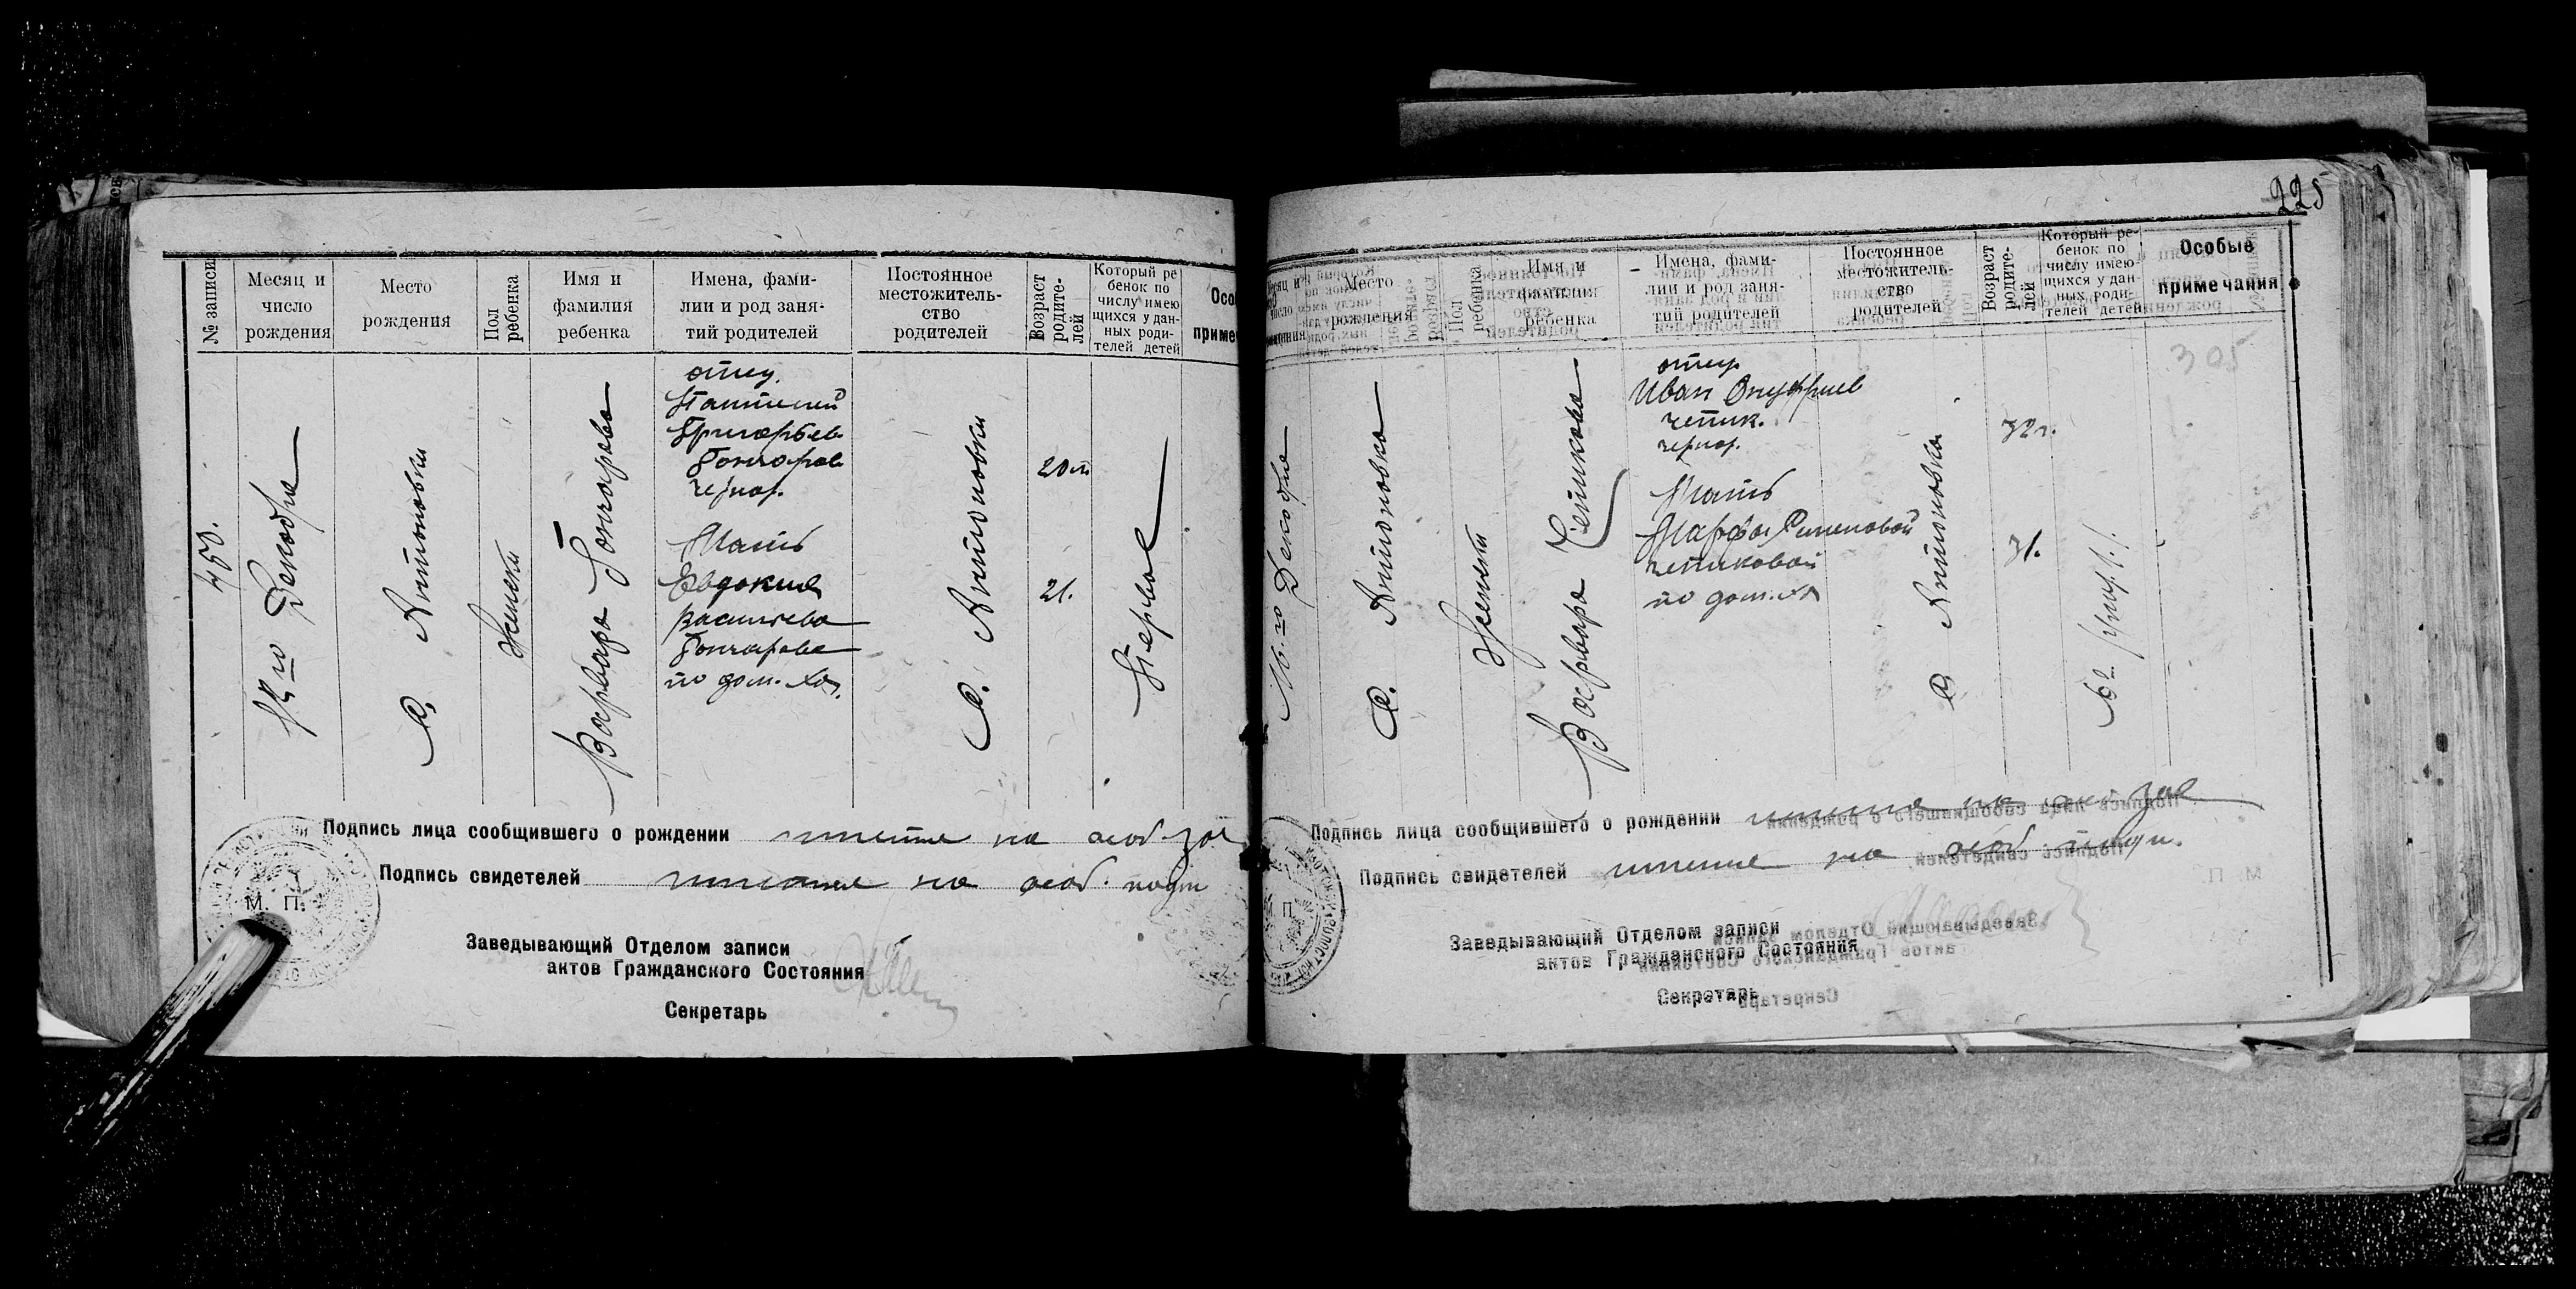 № записи
Месяц и
число
рождения
Место
рождения
Пол
ребенка
Имя и
фамилия
ребенка
Имена, фами-
лии и род заня-
тий родителей
Постоянное
местожитель-
ство
родителей
Возраст
родите-
лей
Который ре
бенок по
числу имею
щихся у дан-
ных роди-
телей детей
Осо
приме
450.
Декабря
С. Антоновки
Женски
Варвара Гончарова
отец
Григорьев
Гончаров
чернор.
Мать
Евдокия
Васильева
Гончарова
по дом. хоз.
С. Антоновки
20 л
21.
Первое
Подпись лица сообщившего о рождении
на особ
Подпись свидетелей
на особ.
М. П.
Заведывающий Отделом записи
актов Гражданского Состояния
Секретарь
225
Место
рождения
Пол
ребенка
Имя и
фамилия
ребенка
Имена, фами-
лии и род заня-
тий родителей
Постоянное
местожитель-
ство
родителей
Возраст
родите-
лей
Который ре-
бенок по
числу имею-
щихся у дан-
ных роди-
телей детей
Особые
примечания
305
Декабря
С. Антоновка
Женски
Варвара Чепикова
отец
Иван Онуфриев
чепик.
чернор.
Мать
Марфа
чепиковой
по дом. хоз
С Антоновка
32 г.
31.
Подпись лица сообщившего о рождении
Подпись свидетелей
на особ
М. П.
Заведывающий Отделом записи
актов Гражданского Состояния
Секретарь